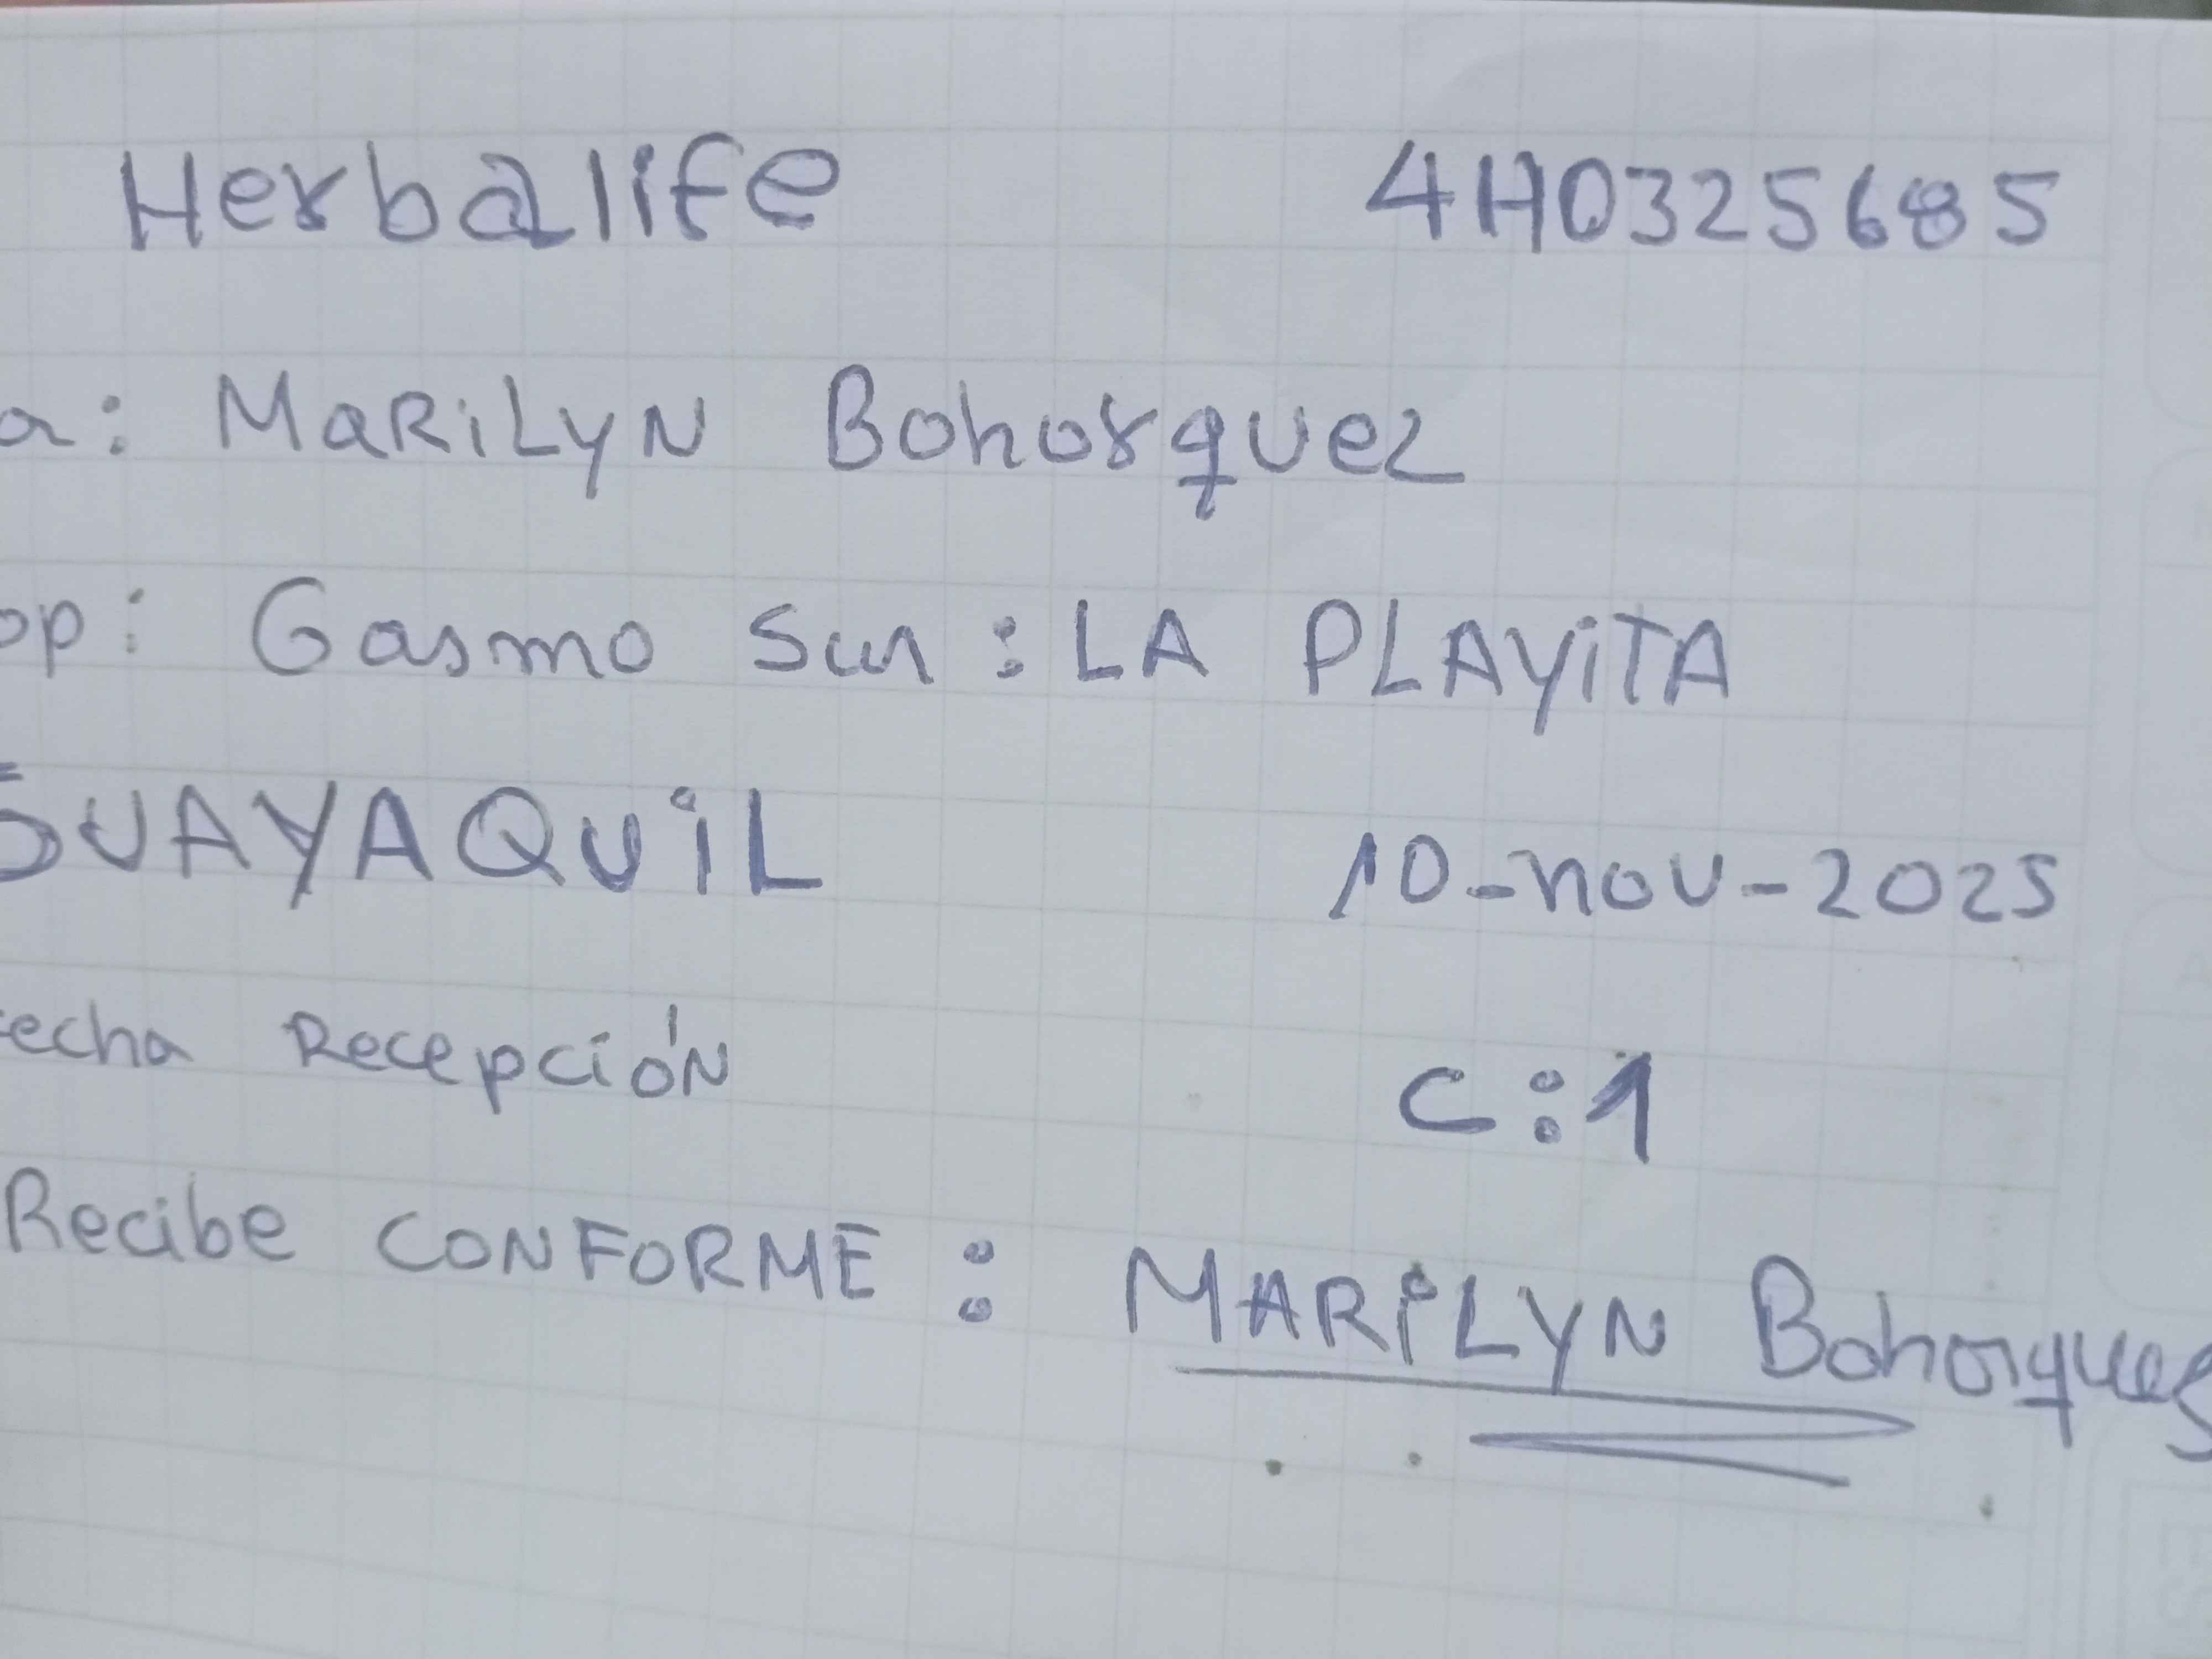 Herbalife 4H0325685
a: MaRiLyN Bohorquez
op: Gasmo Sur : LA PLAYiTA
GUAYAQUiL 10-nov-2025
echa Recepción C:1
Recibe CONFORME : MARiLYN Bohorques